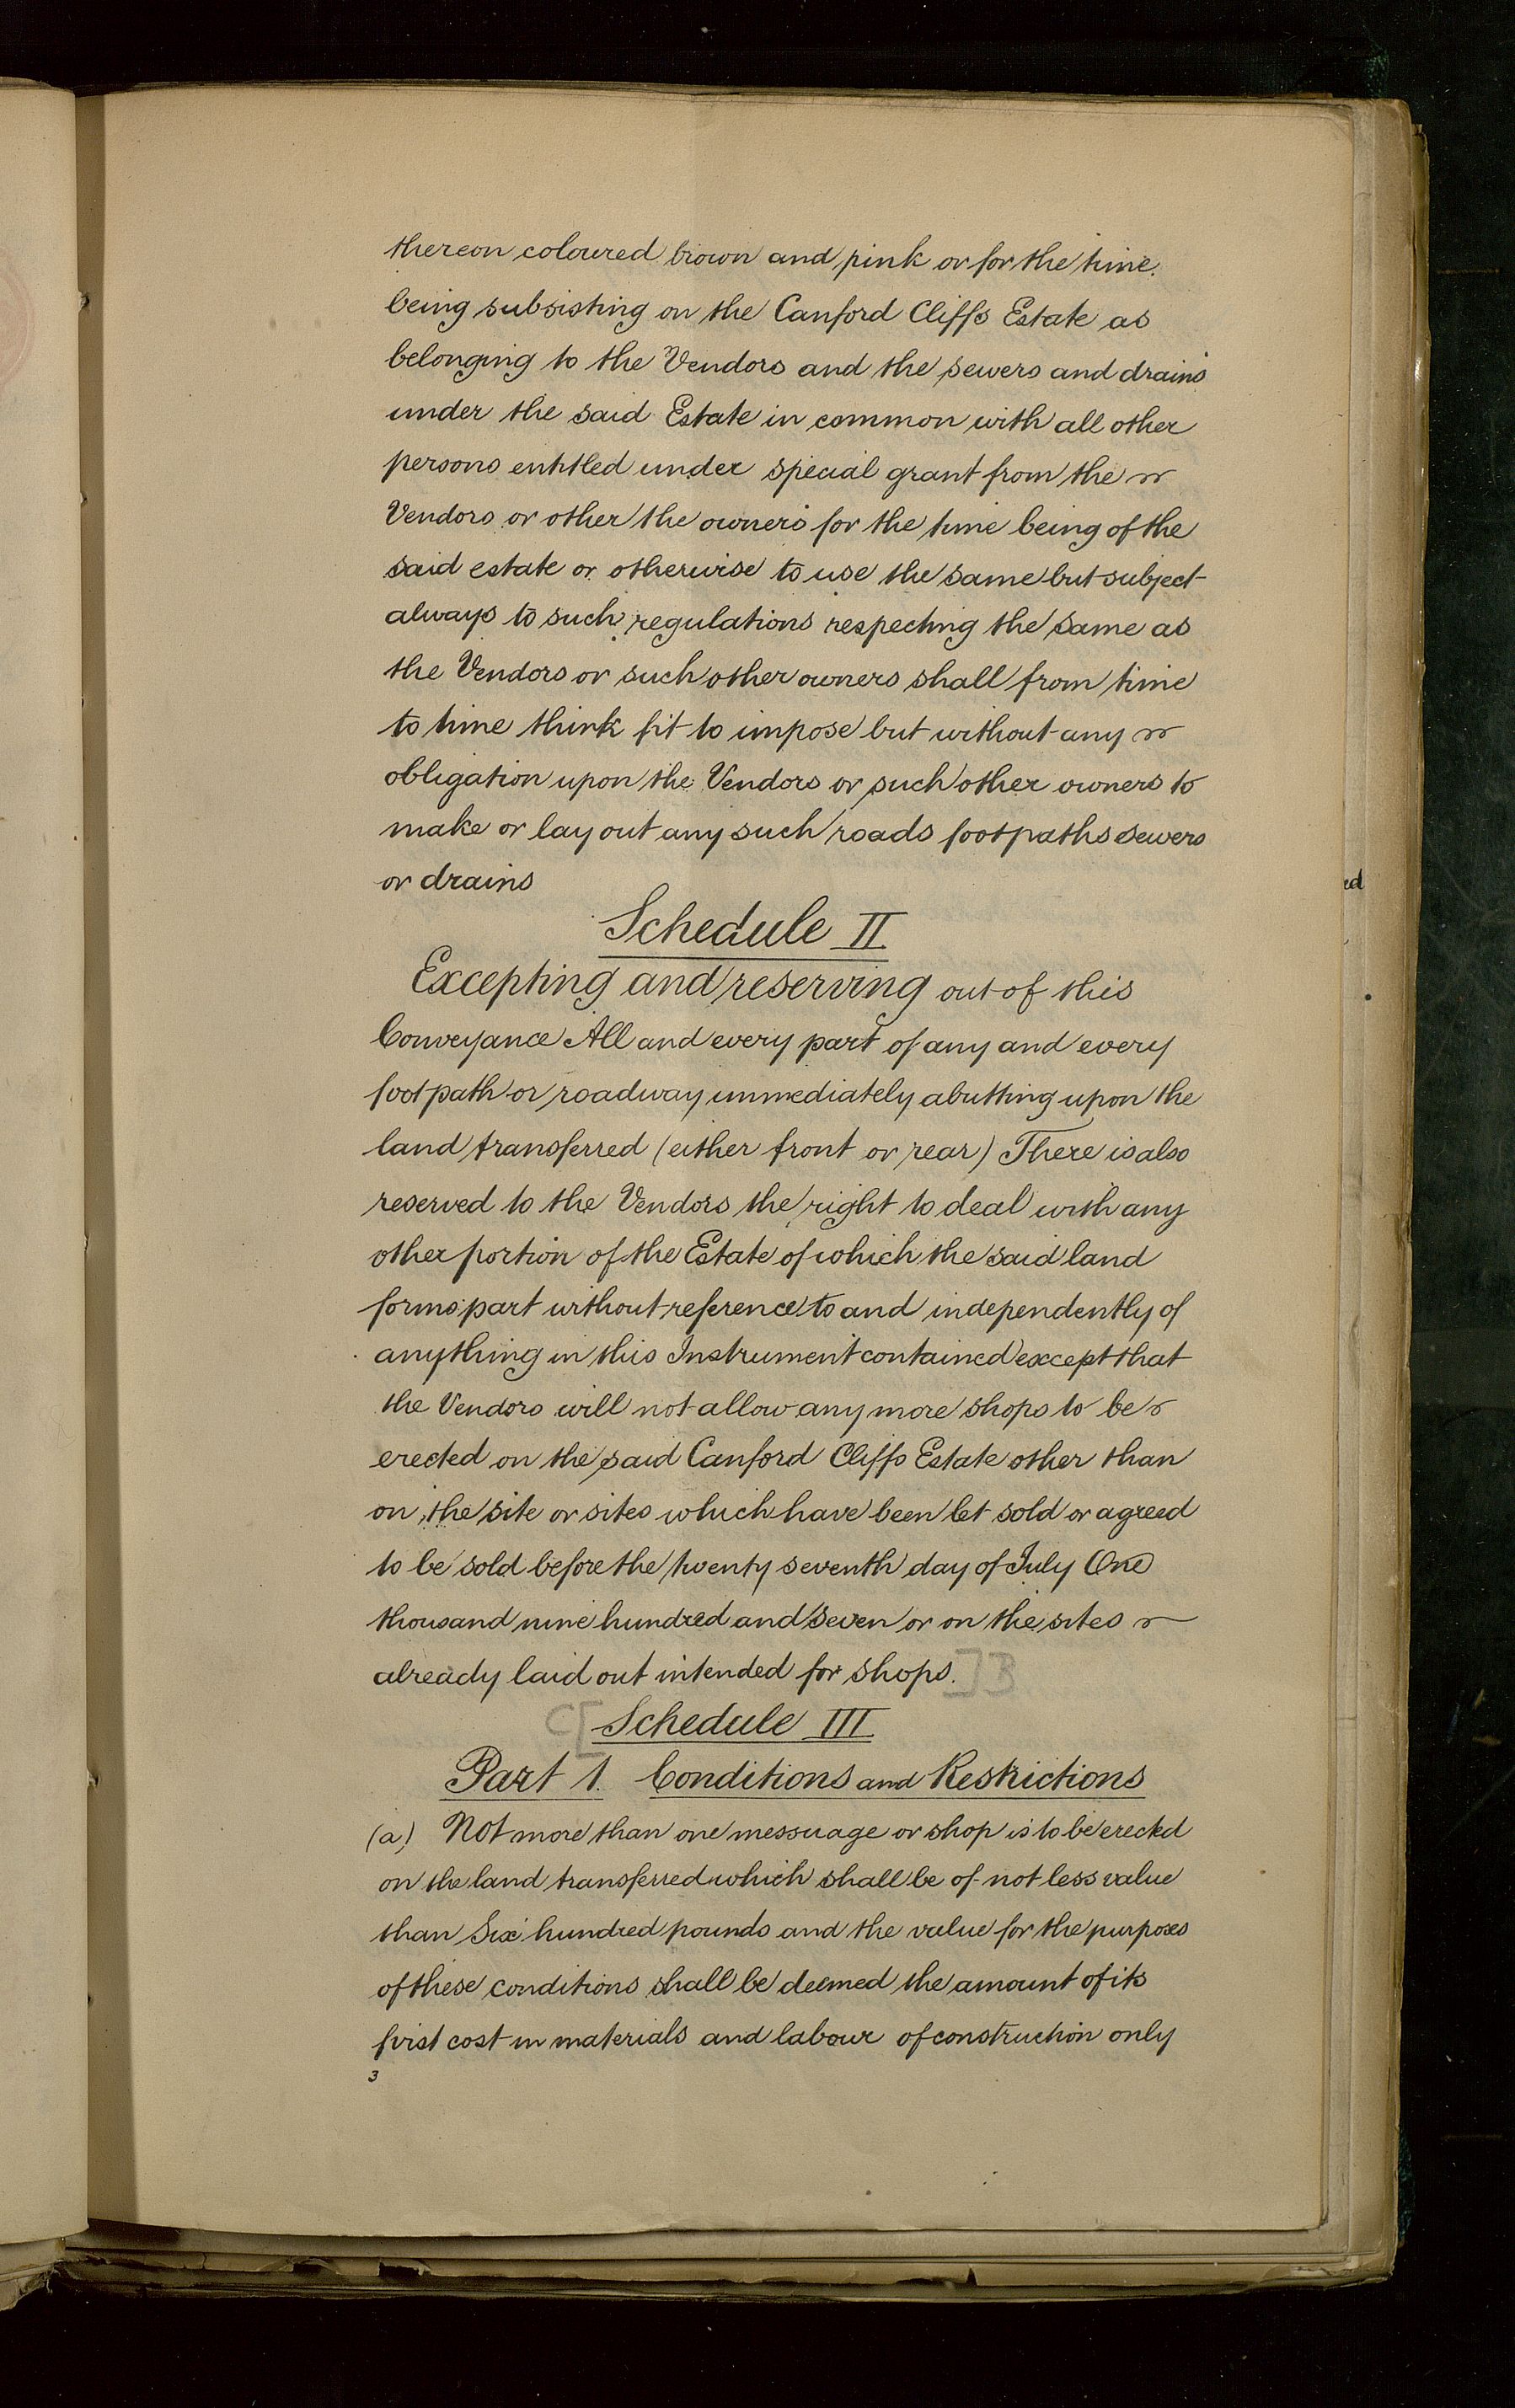 thereon coloured brown and pink or for the time
being subsisting on the Canford Cliffs Estate as
belonging to the Vendors and the sewers and drains
under the said Estate in common with all other
persons entitled under special grant from the
Vendors or other the owners for the time being of the
said estate or otherwise to use the same but subject
always to such regulations respecting the same as
the Vendors or such other owners shall from time
to time think fit to impose but without any
obligation upon the Vendors or such other owners to
make or lay out any such roads footpaths sewers
or drains
Schedule II
Excepting and reserving out of this
Conveyance All and every part of any and every
footpath or roadway immediately abutting upon the
land transferred (either front or rear) There is also
reserved to the Vendors the right to deal with any
other portion of the Estate of which the said land
forms part without reference to and independently of
anything in this Instrument contained except that
the Vendors will not allow any more shops to be
erected on the said Canford Cliffs Estate other than
on the site or sites which have been let sold or agreed
to be sold before the twenty seventh day of July One
thousand nine hundred and seven or on the sites
already laid out intended for shops. ]B
C[ Schedule III
Part 1. Conditions and Restrictions
(a) Not more than one messuage or shop is to be erected
on the land transferred which shall be of not less value
than Six hundred pounds and the value for the purposes
of these conditions shall be deemed the amount of its
first cost in materials and labour of construction only
3
ed